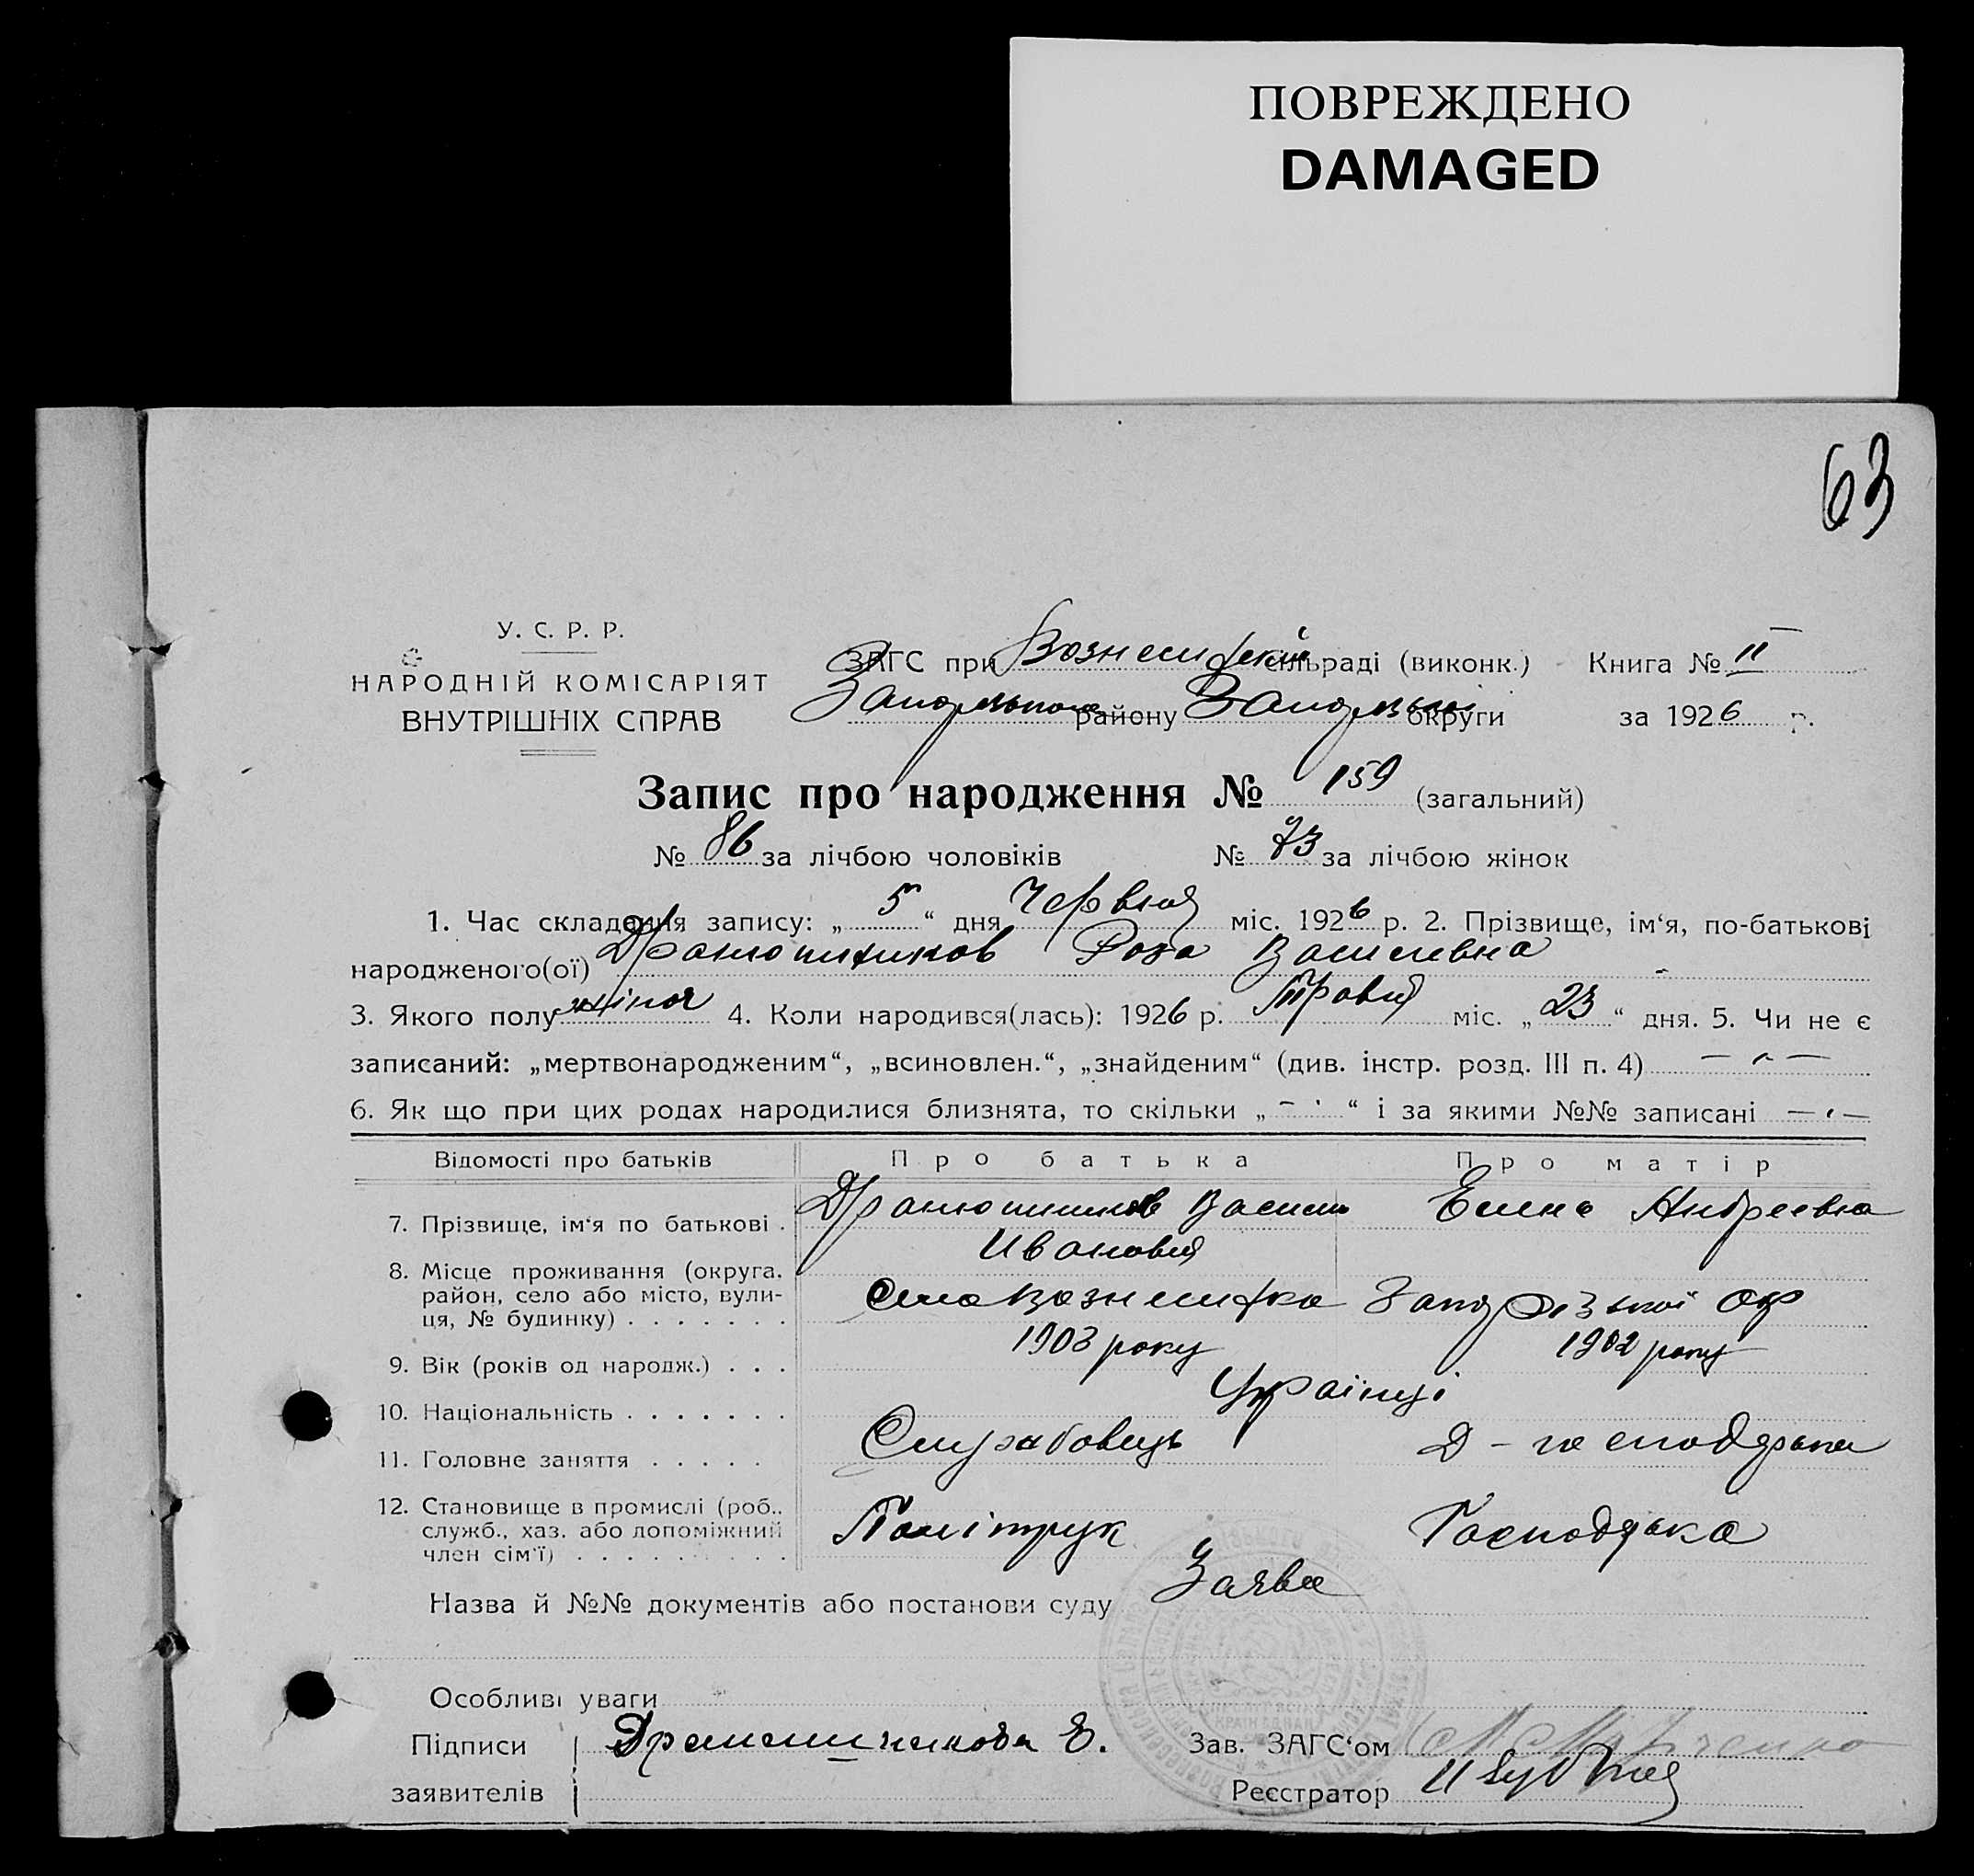 ПОВРЕЖДЕНО
DAMAGED
63
У. С. Р. Р.
НАРОДНІЙ КОМІСАРІЯТ
ВНУТРІШНІХ СПРАВ
ЗАГС при Вознесенській сільраді (виконк.) Книга № II
району округи за 1926 р.
Запис про народження № 159 (загальний)
№ 86 за лічбою чоловіків № 73 за лічбою жінок
1. Час складання запису: „ 5 “ дня Червня міс. 1926 р. 2. Прізвище, ім‘я, по-батькові
народженого(ої) Роза Василевна
3. Якого полу жіноч 4. Коли народився(лась): 1926 р. Травня міс. „ 23 “ дня. 5. Чи не є
записаний: „мертвонародженим“, „всиновлен.“, „знайденим“ (див. інстр. розд. III п. 4) — „ —
6. Як що при цих родах народилися близнята, то скільки „ — “ і за якими №№ записані — „ —
Відомості про батьків Про батька Про матір
7. Прізвище, ім‘я по батькові . Василь Елена Андреевна
Иванович
8. Місце проживання (округа.
район, село або місто, вули-
ця, № будинку) . . . . . . . село Вознесенка Запорізької окр
9. Вік (років од народж.) . . . 1903 року 1902 року
10. Національність . . . . . . . Українці
11. Головне заняття . . . . . Д - господарка
12. Становище в промислі (роб..
служб., хаз. або допоміжний
член сім‘ї) . . . . . . . . . Політрук Господарка
Назва й №№ документів або постанови суду Заява
Особливі уваги
Підписи Е. Зав. ЗАГС‘ом
заявителів Реєстратор